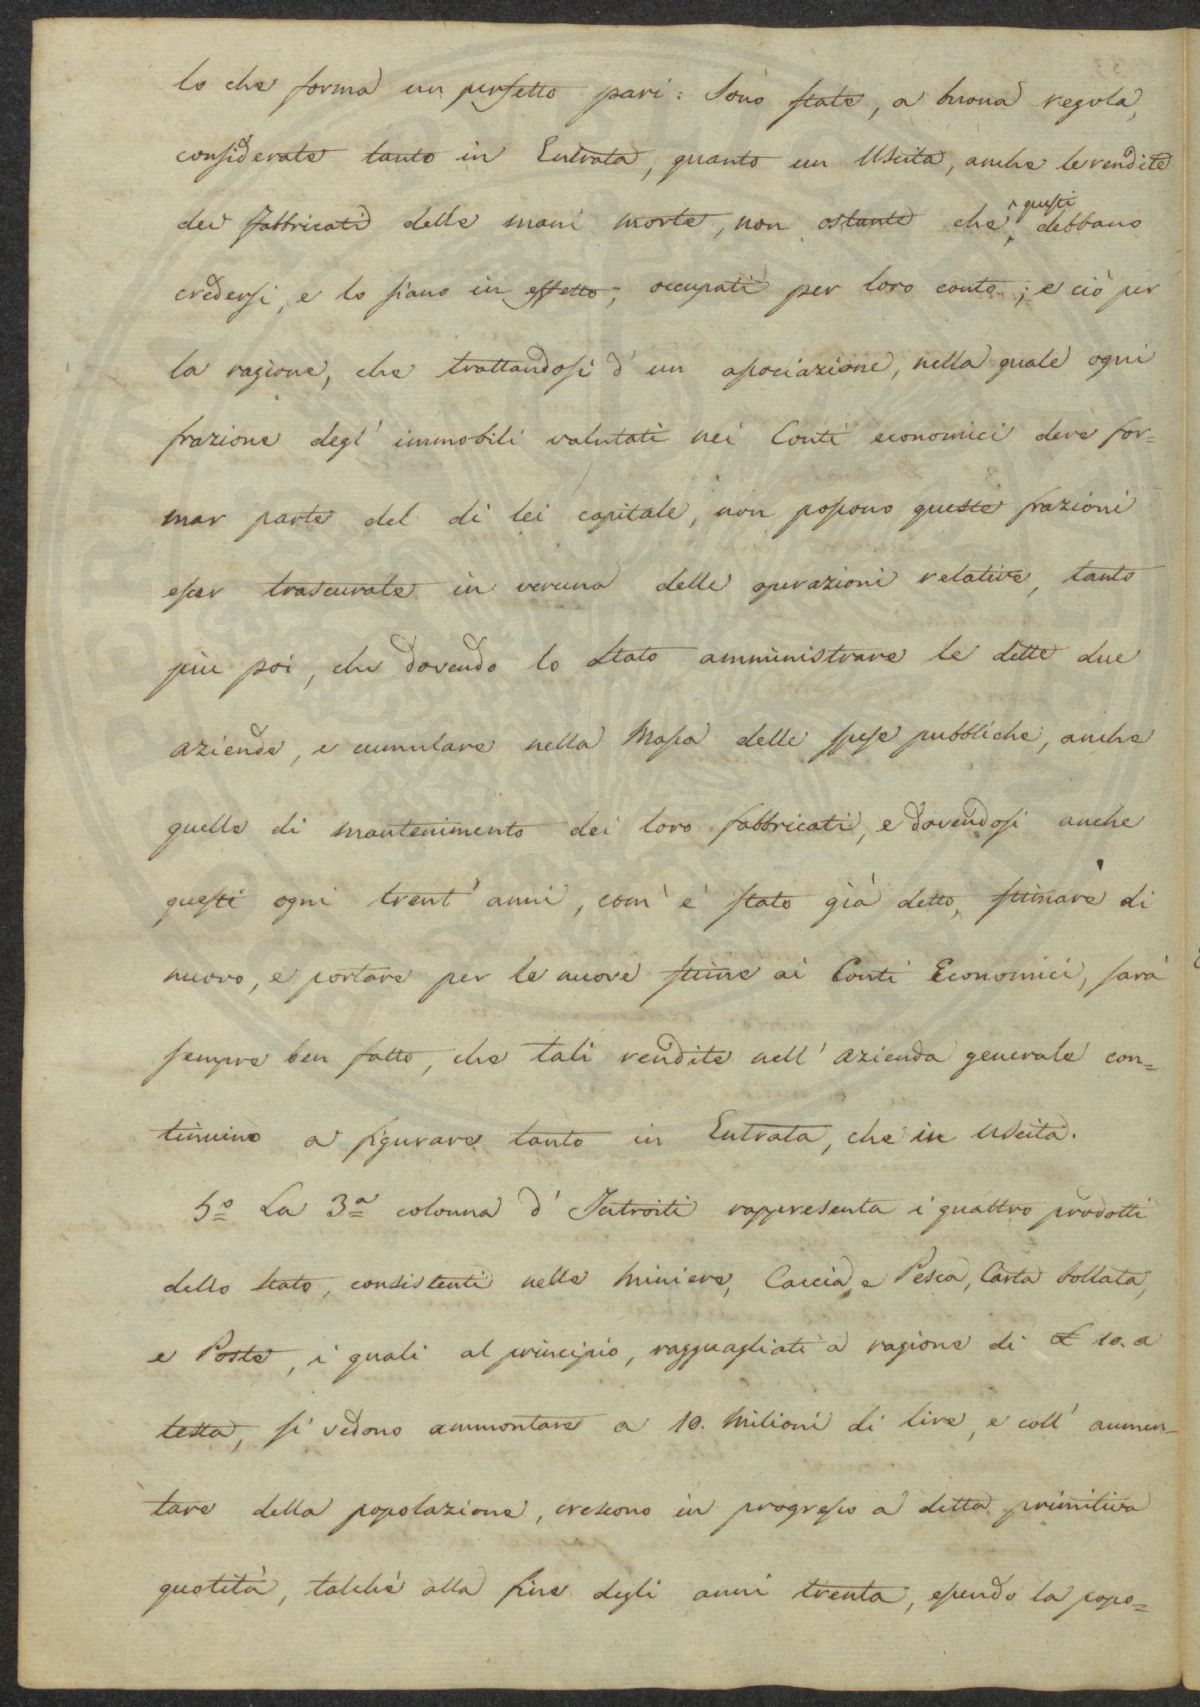 lo che forma un perfetto pari: Sono state, a buona regola,
considerate tanto in Entrata, quanto un Uscita, anche le rendite
dei Fabbricati delle mani morte, non ostante che questi debbano
credersi, e lo siano in effetto, occupati per loro conto; e ciò per
la ragione, che trattandosi d'un associazione, nella quale ogni
frazione degl'immobili valutati nei Conti economici deve for=
mar parte del di lei capitale, non possono queste frazioni
esser trascurate in veruna delle operazioni relative, tanto
più poi, che dovendo lo Stato amministrare le dette due
aziende, e cumulare nella Massa delle spese pubbliche, anche
quelle di mantenimento dei loro fabbricati, e dovendosi anche
questi ogni trent'anni, com'è stato già detto, stimare di
nuovo, e portare per le nuove stime ai Conti Economici, sarà
sempre ben fatto, che tali rendite nell'azienda generale con=
tinuino a figurare tanto in Entrata, che in uscita.
5.º La 3.ª colonna d'Introiti rappresenta i quattro prodotti
dello Stato, consistenti nelle Miniere, Caccia, e Pesca, Carta bollata,
e Poste, i quali al principio, ragguagliati a ragione di £ 10. a
testa, si vedono ammontare a 10. Milioni di lire, e coll'aumen=
tare della popolazione, crescono in progresso a detta primitiva
quotità, talchè alla fine degli anni trenta, essendo la popo=